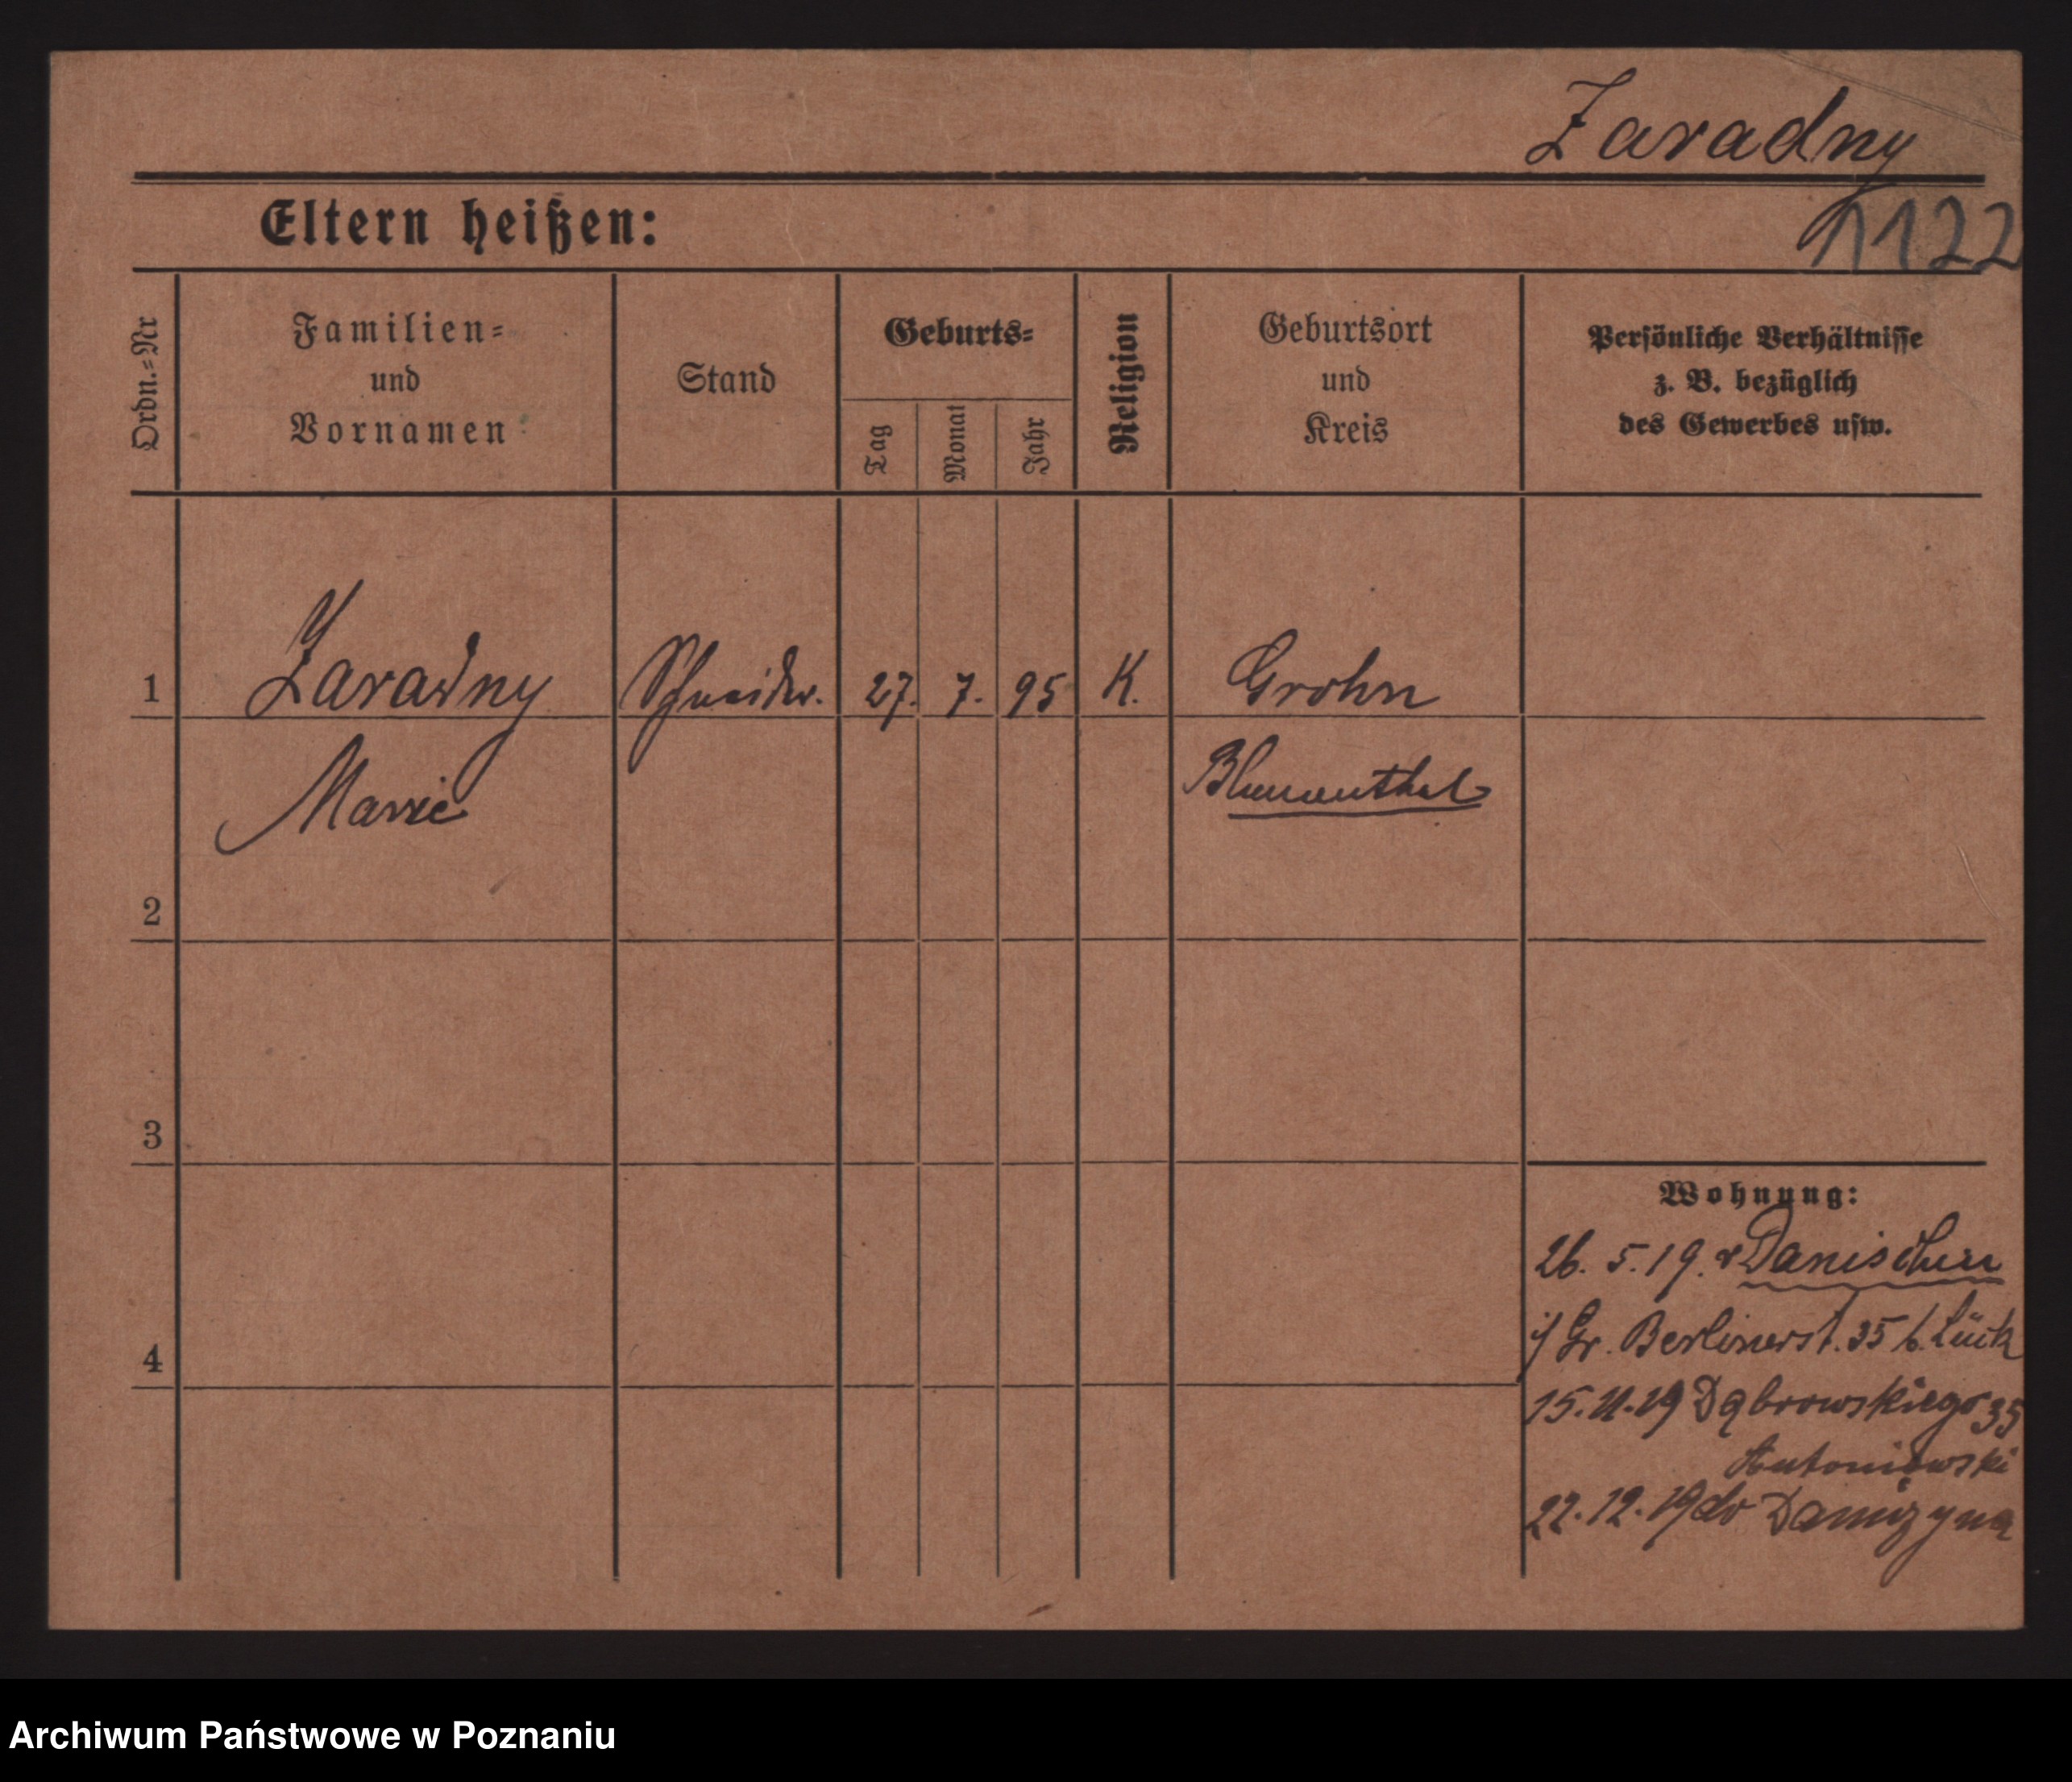 Zaradny
1122
Eltern heißen:
Ordn.=Nr
Familien=
und
Vornamen
Stand
Geburts=
Tag
Monat
Jahr
Religion
Geburtsort
und
Kreis
Persönliche Verhältnisse
z. B. bezüglich
des Gewerbes usw.
1 Zaradny Schneider. 27. 7. 95 K. Grohn
Marie Blumenthal
2
3
Wohnung:
26. 5. 19. v Danischin
Gr. Berlinerst. 35 b. Lück
4
15. 11. 19 Dąbrowskiego 35
Antoniewski
22. 12. 19 do
Archiwum Państwowe w Poznaniu